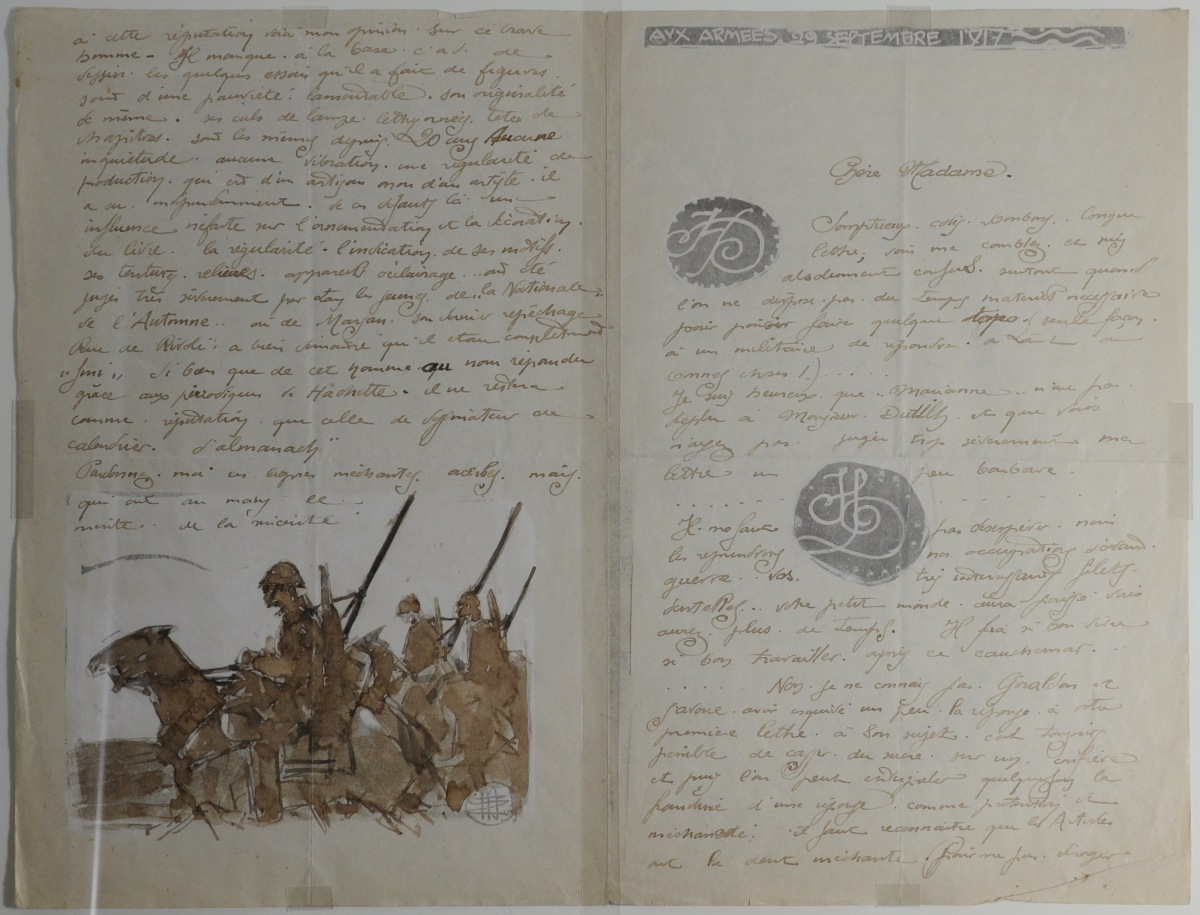 AVX ARMEES 29 SEPTEMBRE 1917
Chère Madame.
Somptueux colis. bonbons. longue
lettre, vous me comblez. ce suis
absolument confus. surtout quand
l'on ne dispose pas du temps matériel nécessaire
pour pouvoir faire quelque topo.. seule façon.
à un militaire de répondre. à tant de
bonnes choses !) .....
Je suis heureux que "Marianne" n'aie pas
déplu à Monsieur et que vous
n'ayez pas jugée trop sévèrement ma
lettre un peu barbare.
Il ne faut pas désespérer. nous
les reprendrons nos occupations d'avant.
guerre. vos. très intéressants filets.
dentelles.. votre petit monde aura poussé. vous
aurez plus de temps. Il fera si bon vivre
si bon travailler. après ce cauchemar...
..... Non je ne connais pas Giraldon et
j'avoue avoir esquivé un peu la réponse à votre
première lettre à son sujet. c'est toujours
pénible de casser du sucre sur un confrère
et puis l'on peut quelquefois la
franchise d'une réponse comme prétention et
méchanceté; il faut reconnaître que les Artistes
ont la dent méchante. Pour ne pas déroger
à cette réputation voici mon opinion sur ce brave
homme - Il manque à la base c.a.d. de
dessin. les quelques essais qu'il a fait de figures
sont d'une pauvreté lamentable. son originalité
de même. ses culs de lampe. têtes de
chapitres. sont les mêmes depuis 20 ans Aucune
inquiétude. aucune vibration. une régularité de
production. qui est d'un artisan non d'un artiste. il
a eu de ces défauts là une
influence néfaste sur l'ornementation et la décoration
du livre. la régularité. l'indication de ses motifs.
ses tentures. reliures. appareils éclairage... ont été
jugés très sévèrement par tous les jeunes de "la Nationale"
de l'Automne.. ou de Marsan. son dernier repêchage
Rue de Rivoli, a bien démontré qu'il était complètement
"fini" Si bien que de cet homme au nom répandu
grâce aux périodiques de Hachette. il ne restera
comme réputation que celle de dessinateur de
calendrier. d'almanach"
Pardonnez moi ces lignes méchantes acerbes. mais
qui ont au moins le
mérite de la sincérité